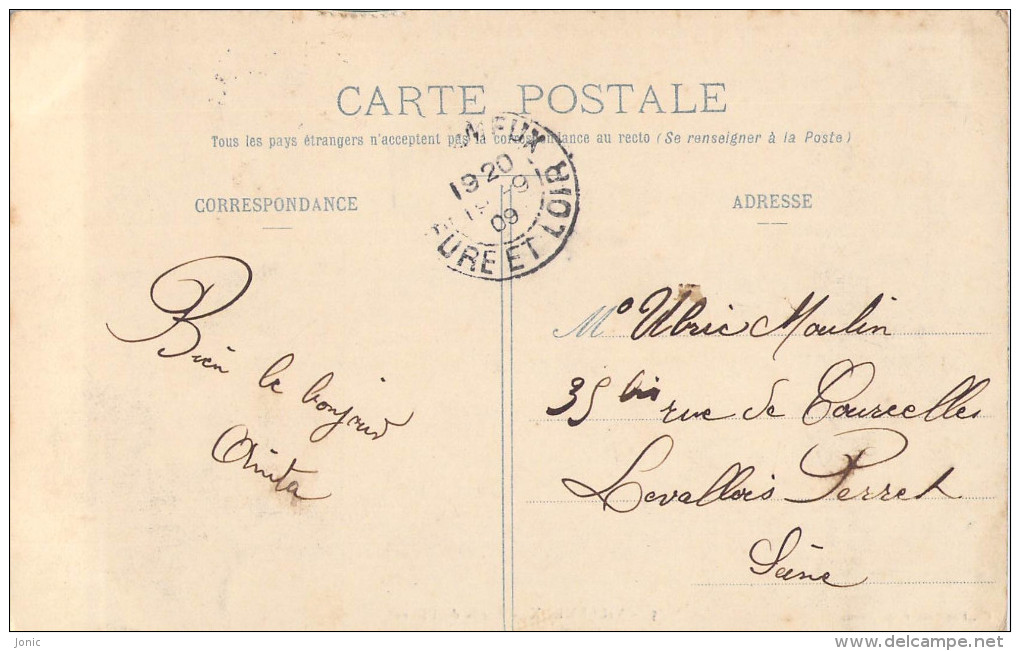 CARTE POSTALE
Tous les pays étrangers n'acceptent pas la correspondance au recto (Se renseigner à la Poste)
CORRESPONDANCE
ADRESSE
19 20
09
EURE ET LOIR
Bien le bonjour
Anita
Mr Ulric Moulin
35 bis rue de Courcelles
Levallois Perret
Seine
Jonic
www.delcampe.net